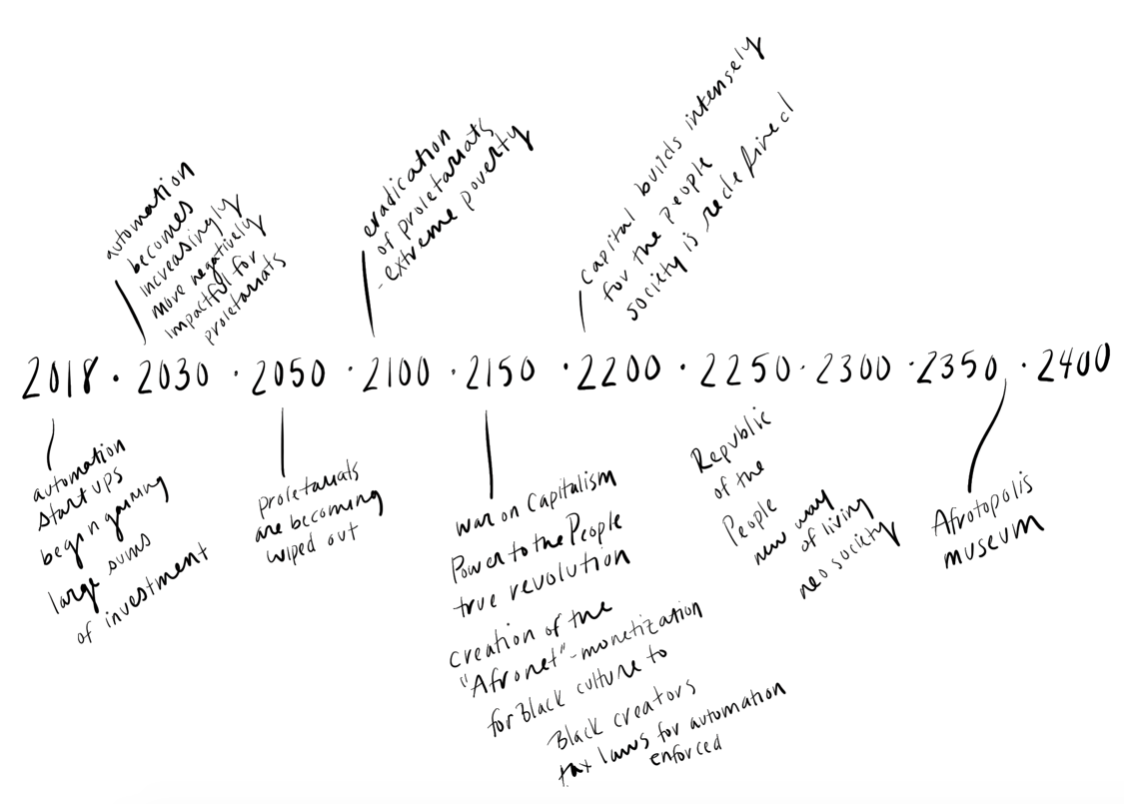 automation
becomes
increasingly
more negatively
impactful for
proletariats
eradication
of proletariats
- extreme poverty
capital builds intensely
for the people
society is redefined
2018 · 2030 · 2050 · 2100 · 2150 · 2200 · 2250 · 2300 · 2350 · 2400
automation
start ups
begin gaining
large sums
of investment
proletariats
are becoming
wiped out
war on Capitalism
Power to the People
true revolution
creation of the
"Afronet" - monetization
for Black culture to
Black creators
tax laws for automation
enforced
Republic
of the
People
new way
of living
neo society
Afrotopolis
museum